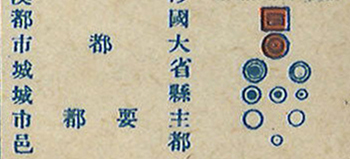 國都
大都市
省城
縣城
主要都市
都邑